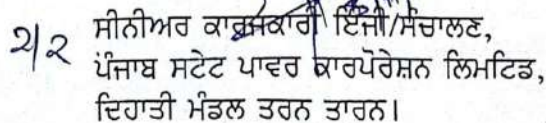 ਸੀਨੀਅਰ ਕਾਰਜਕਾਰੀ ਇੰਜੀ/ਸੰਚਾਲਣ,
ਪੰਜਾਬ ਸਟੇਟ ਪਾਵਰ ਕਾਰਪੋਰੇਸ਼ਨ ਲਿਮਟਿਡ,
ਦਿਹਾਤੀ ਮੰਡਲ ਤਰਨ ਤਾਰਨ।